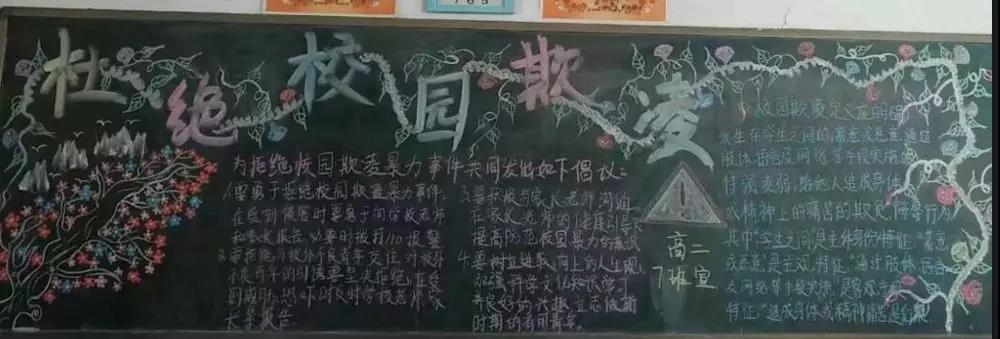 765
杜绝校园欺凌
为拒绝校园欺凌暴力事件共同发出如下倡议:
1.要勇于拒绝校园欺凌暴力事件
在受到侵害时要勇于向学校老师
和家长报告,必要时拨打110报警
2.要拒绝与校外不良青年交往,对校外
不良青年的引诱要坚决拒绝,在受
到威胁、恐吓时及时学校老师家
长等报告
3.要积极与家长老师沟通
在家长老师的健康引导下
提高防范校园暴力的意识
4.要树立进取向上的人生观,
加强科学文化知识学习
养良好的兴趣,立志做新
时期的有用青年.
高二
7班宣
校园欺凌定义应明确
发生在学生之间的蓄意或恶意通过
肢体语言及网络等手段实施
恃强凌弱,给他人造成身体
或精神上的痛苦的欺凌侮辱行为
其中"学生之间"是主体身份特征,"蓄意
或恶意"是主观特征"通过肢体语言
及网络等手段实施"是客观
特征,"造成身体或精神痛苦是